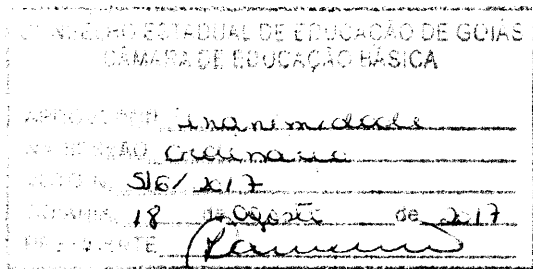 CONSELHO ESTADUAL DE EDUCAÇÃO DE GOIÁS
CÂMARA DE EDUCAÇÃO BÁSICA
APROVADO POR unanimidade
NA SESSÃO ordinária
516/2017
GOIÂNIA, 18 de agosto de 2017
PRESIDENTE